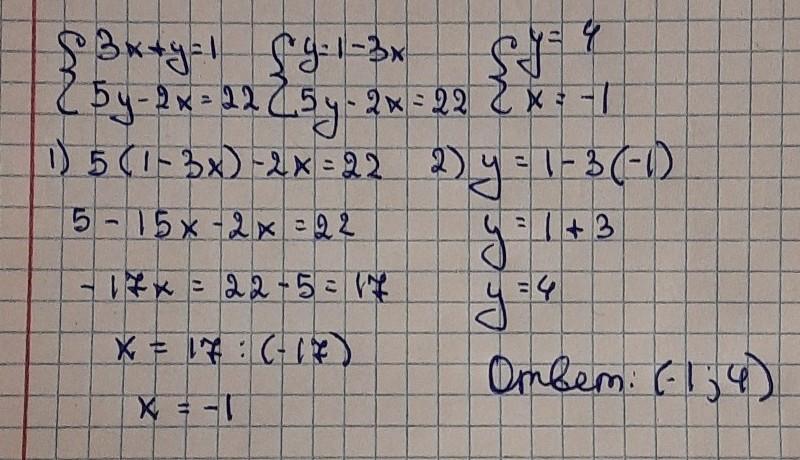 { 3x+y=1 { y=1-3x { y=4
{ 5y-2x=22 { 5y-2x=22 { x=-1
1) 5(1-3x)-2x=22
5-15x-2x=22
-17x=22-5=17
x=17:(-17)
x=-1
2) y=1-3(-1)
y=1+3
y=4
Ответ: (-1;4)